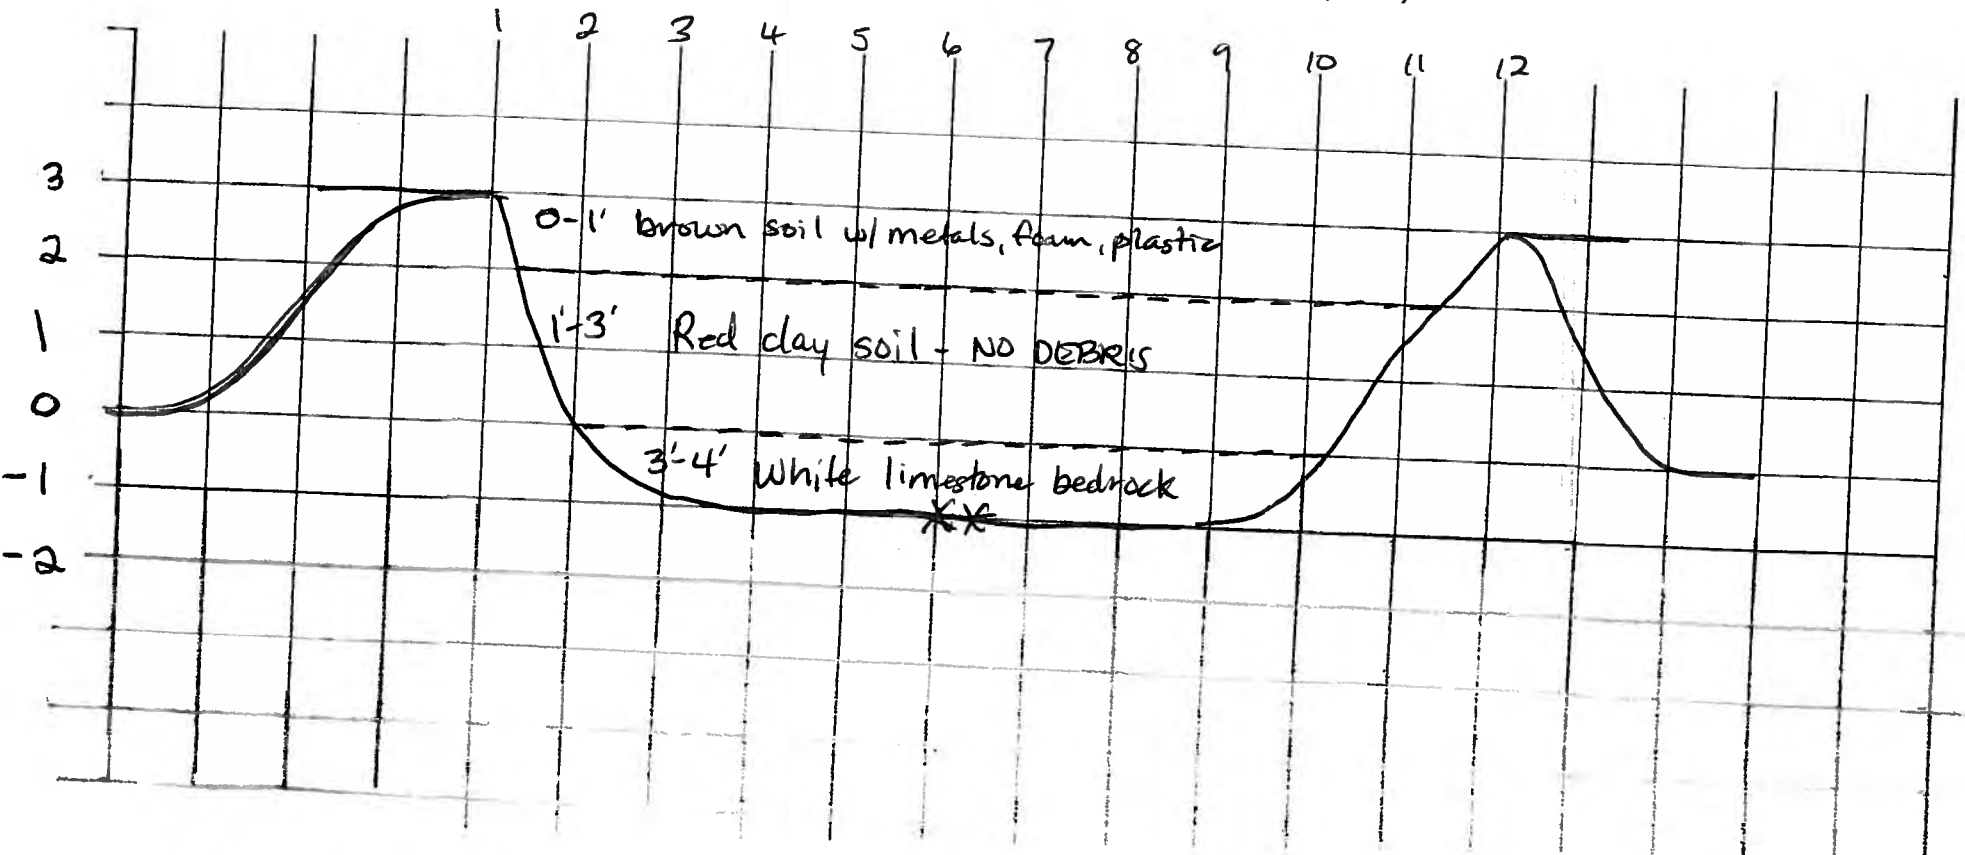 1 2 3 4 5 6 7 8 9 10 11 12
3
0-1' brown soil w/ metals, foam, plastic
2
1
1'-3' Red clay soil - NO DEBRIS
0
3'-4' White limestone bedrock
-1
-2